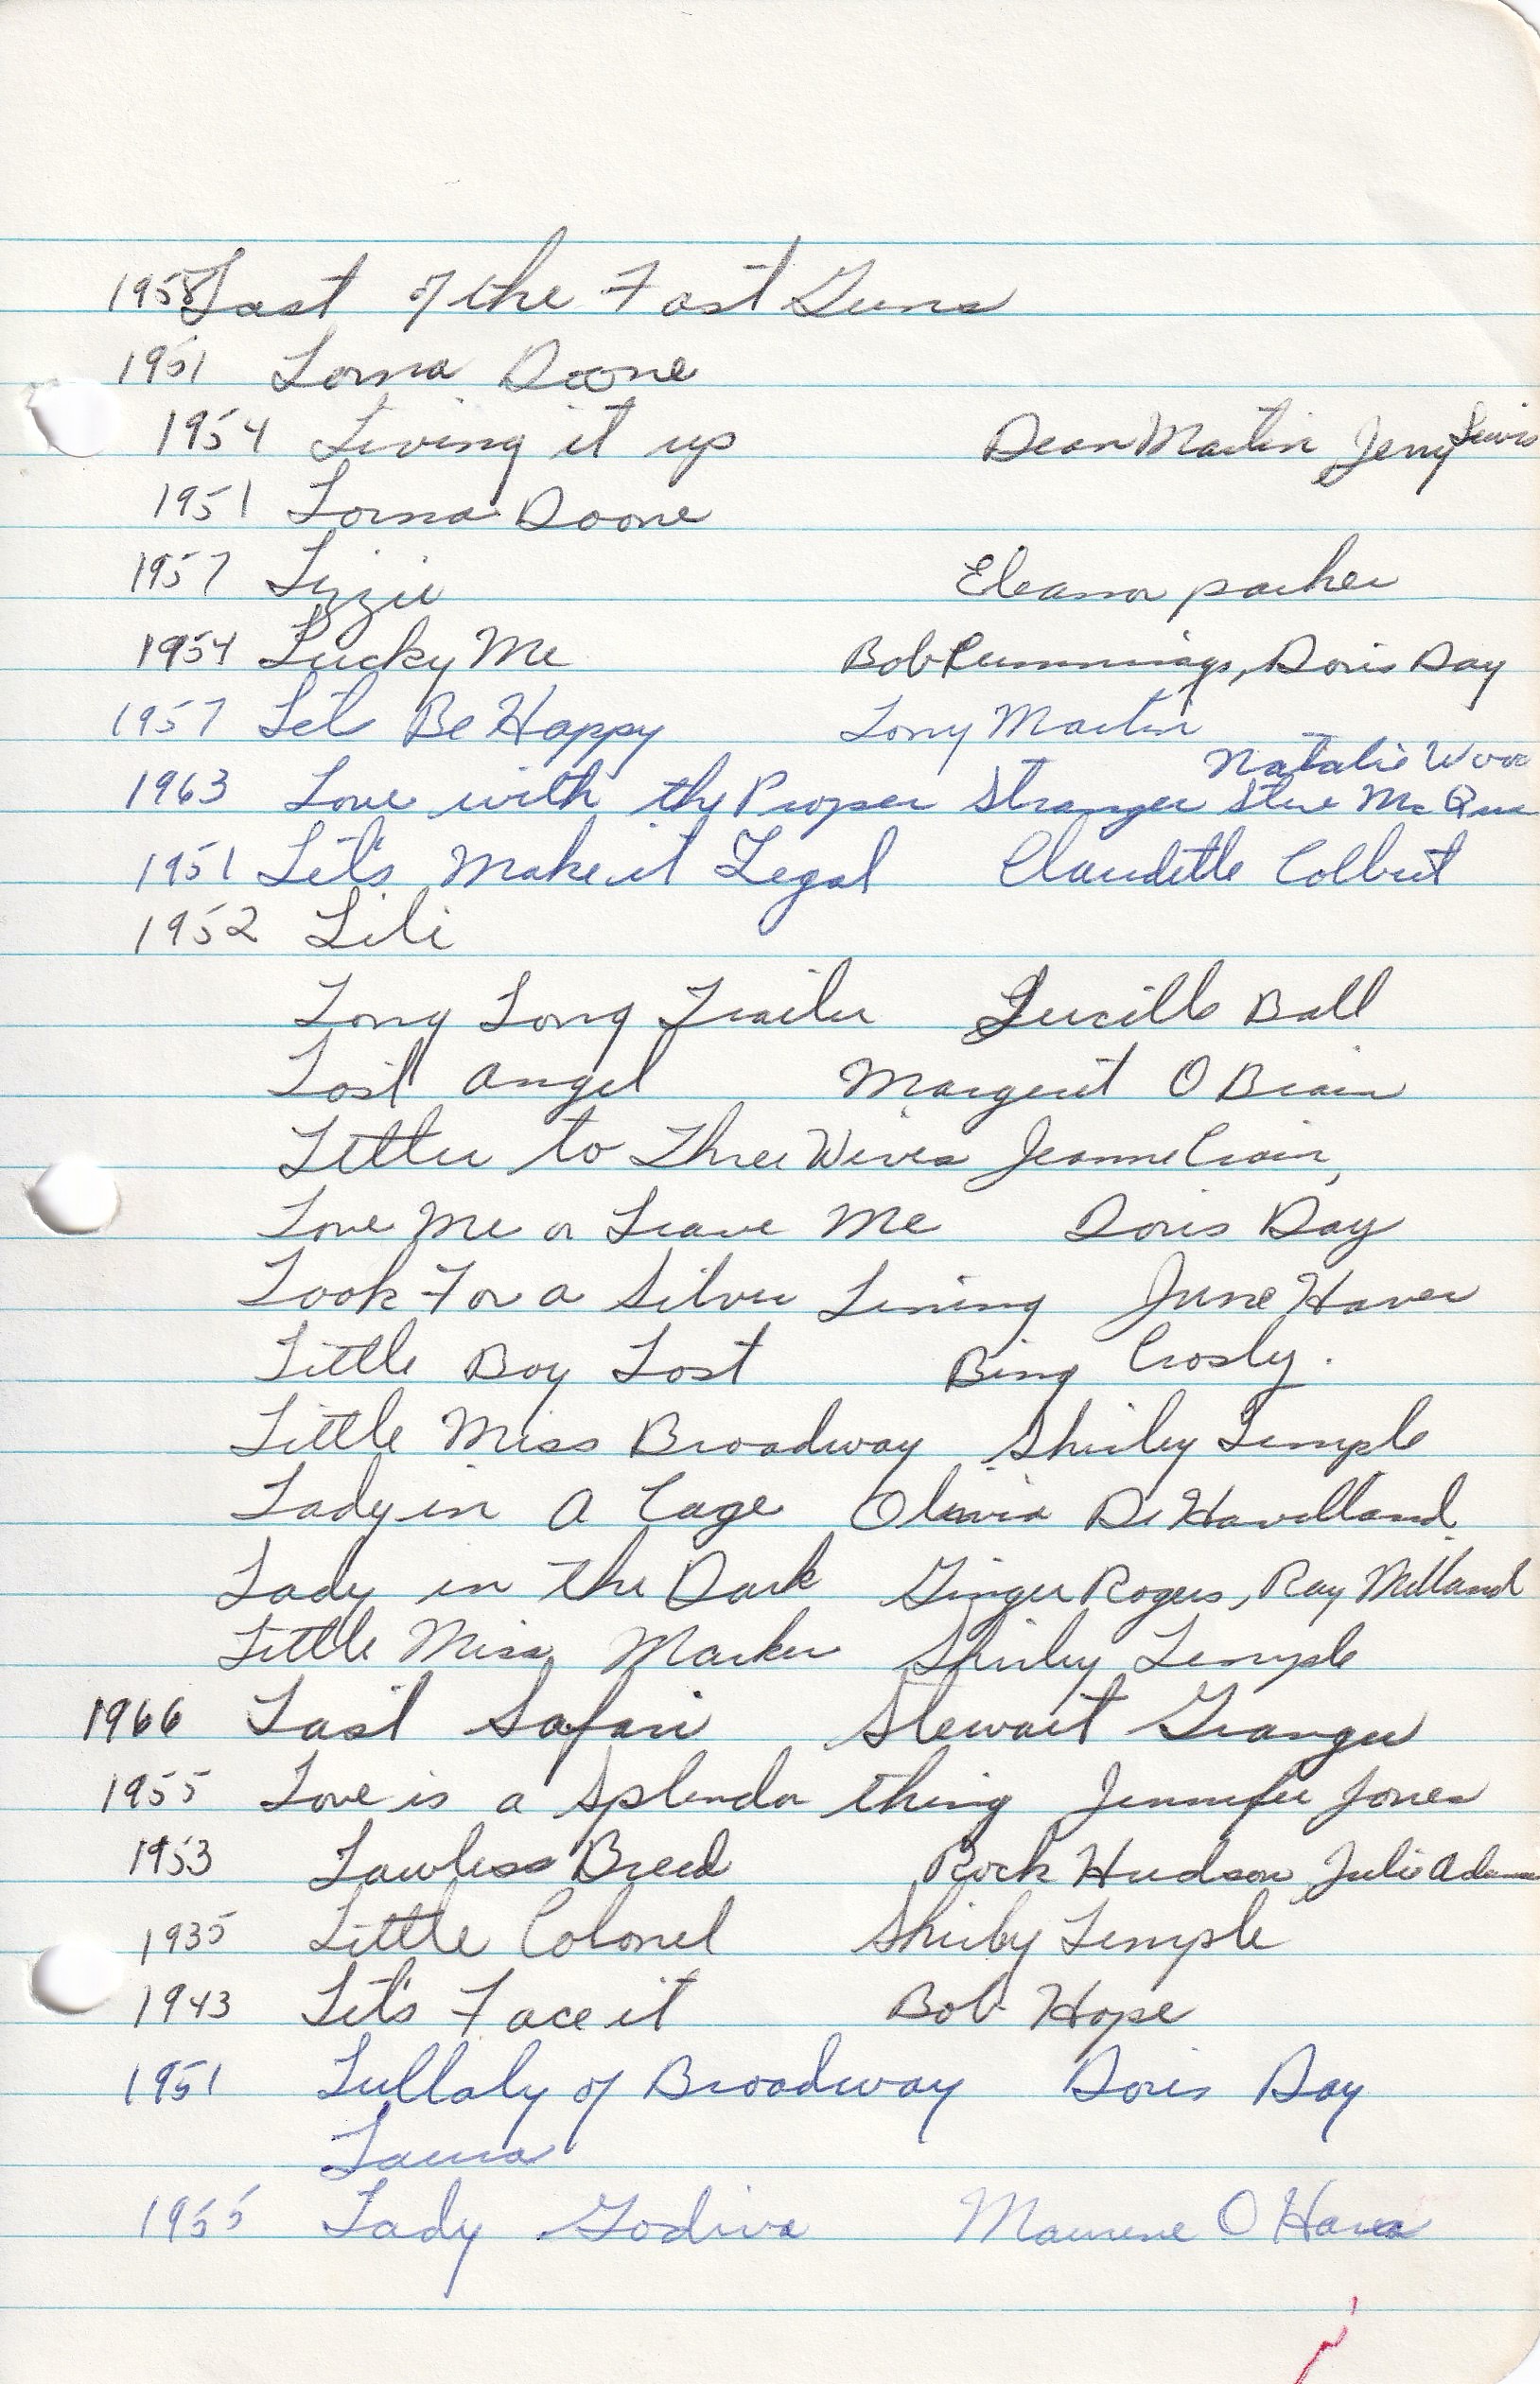 1958 Last of the Fast Guns
1951 Lorna Doone
1954 Living it up Dean Martin Jerry Lewis
1951 Lorna Doone
1957 Lizzie Eleanor parker
1954 Lucky Me Bob Cummings, Doris Day
1957 Let's Be Happy Tony Martin
Natalie Wood
1963 Love with thy Proper Stranger Steve McQue
1951 Let's Make it Legal Claudette Colbert
1952 Lili
Long Long Trailer Lucille Ball
Lost Angel Margeret O Brain
Letter to Three Wives Jeanne Crain,
Love Me or Leave Me Doris Day
Look For a Silver Lining June Haver
Little Boy Lost Bing Crosby.
Little Miss Broadway Shirley Temple
Lady in A Cage Olivia De Havilland
Lady in the Dark Ginger Rogers, Ray Milland
Little Miss Marker Shirley Temple
1966 Last Safari Stewart Granger
1955 Love is a Splendor thing Jennifer Jones
1953 Lawless Breed Rock Hudson Julie Adams
1935 Little Colonel Shirley Temple
1943 Let's Face it Bob Hope
1951 Lullaby of Broadway Doris Day
Laura
1955 Lady Godiva Maureen O Hara